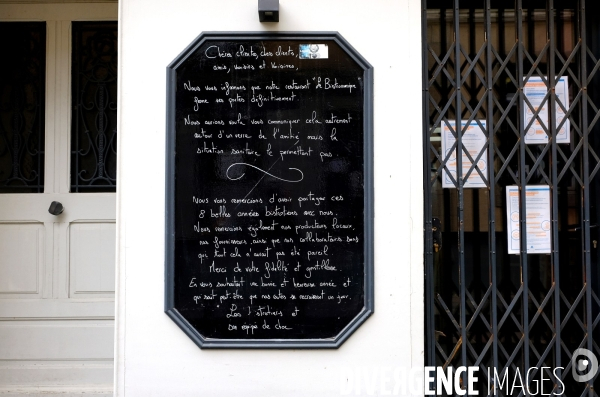 Chères clientes, chers clients,
amis, voisins et voisines,
Nous vous informons que notre restaurant "Le Bistronomique"
ferme ses portes définitivement.
Nous aurions voulu vous communiquer cela autrement
autour d'un verre de l'amitié mais la
situation sanitaire le permettant pas.
Nous vous remercions d'avoir partager ces
8 belles années bistrotières avec nous.
Nous remercions également nos producteurs locaux,
nos fournisseurs, ainsi que nos collaborateurs sans
qui tout cela n'aurait pas été pareil.
Merci de votre fidélité et gentillesse.
En vous souhaitant une bonne et heureuse année, et
qui sait peut-être que nos routes se recroiseront un jour.
"Les 
son équipe de choc
DIVERGENCE IMAGES